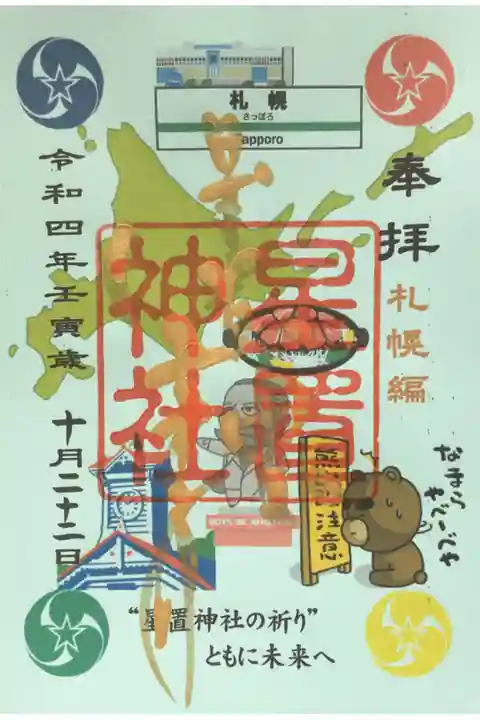 札幌
さっぽろ
Sapporo
奉拝
札幌編
星置
神社
令和四年壬寅歳
十月二十二日
熊出没注意
なまら
やべーべや
BOYS BE AMBITIOUS
“星置神社の祈り”
ともに未来へ